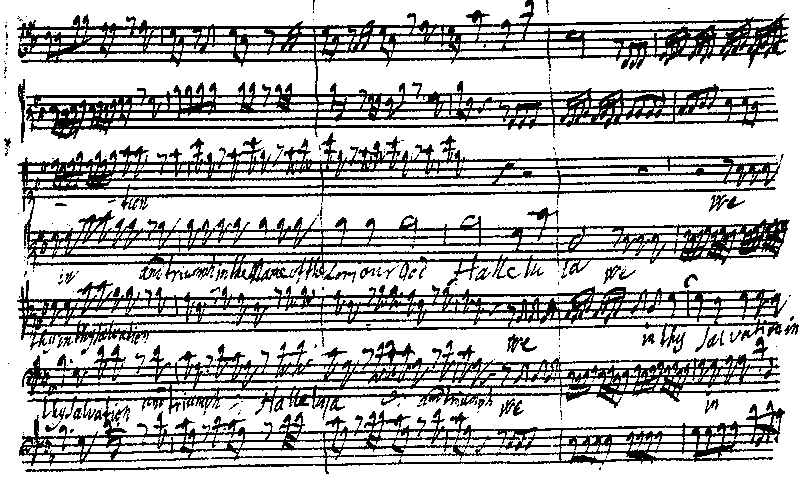 tion we
in and triumph in the Name of the Lord our God Hallelu ia we
thy Salvation we in thy Salvation in
thy Salvation and triumph Halleluja and triumph we in